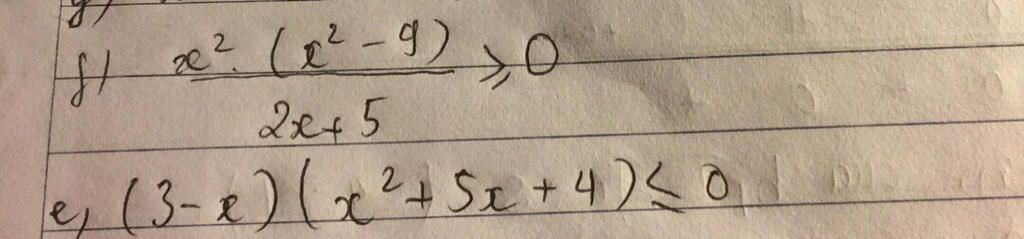 f) x². (x² - 9) / 2x + 5 ≥ 0
e, (3 - x) (x² + 5x + 4) ≤ 0